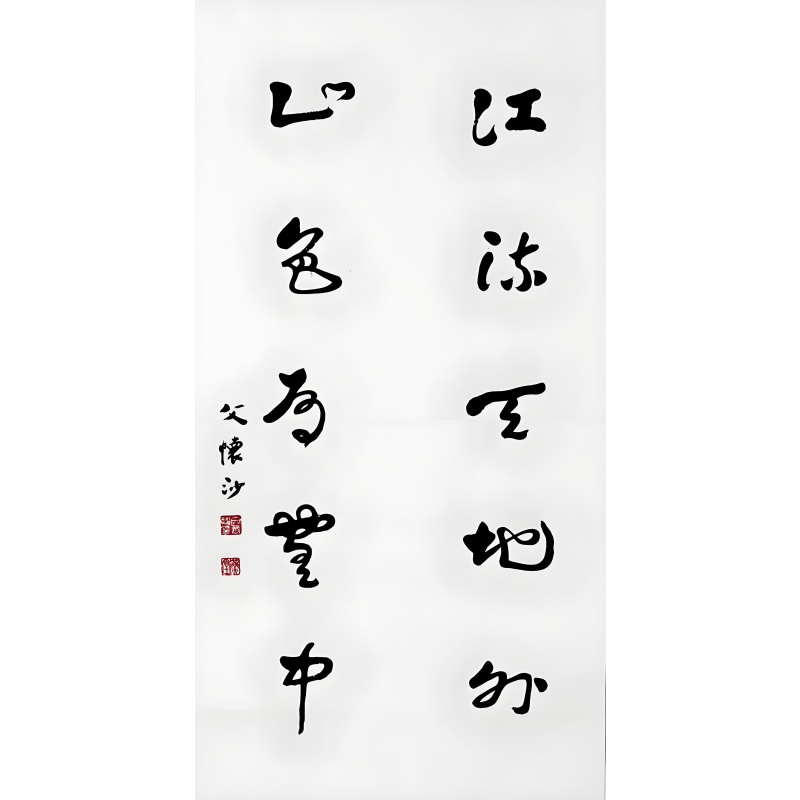 江流天地外
山色有無中
文懷沙